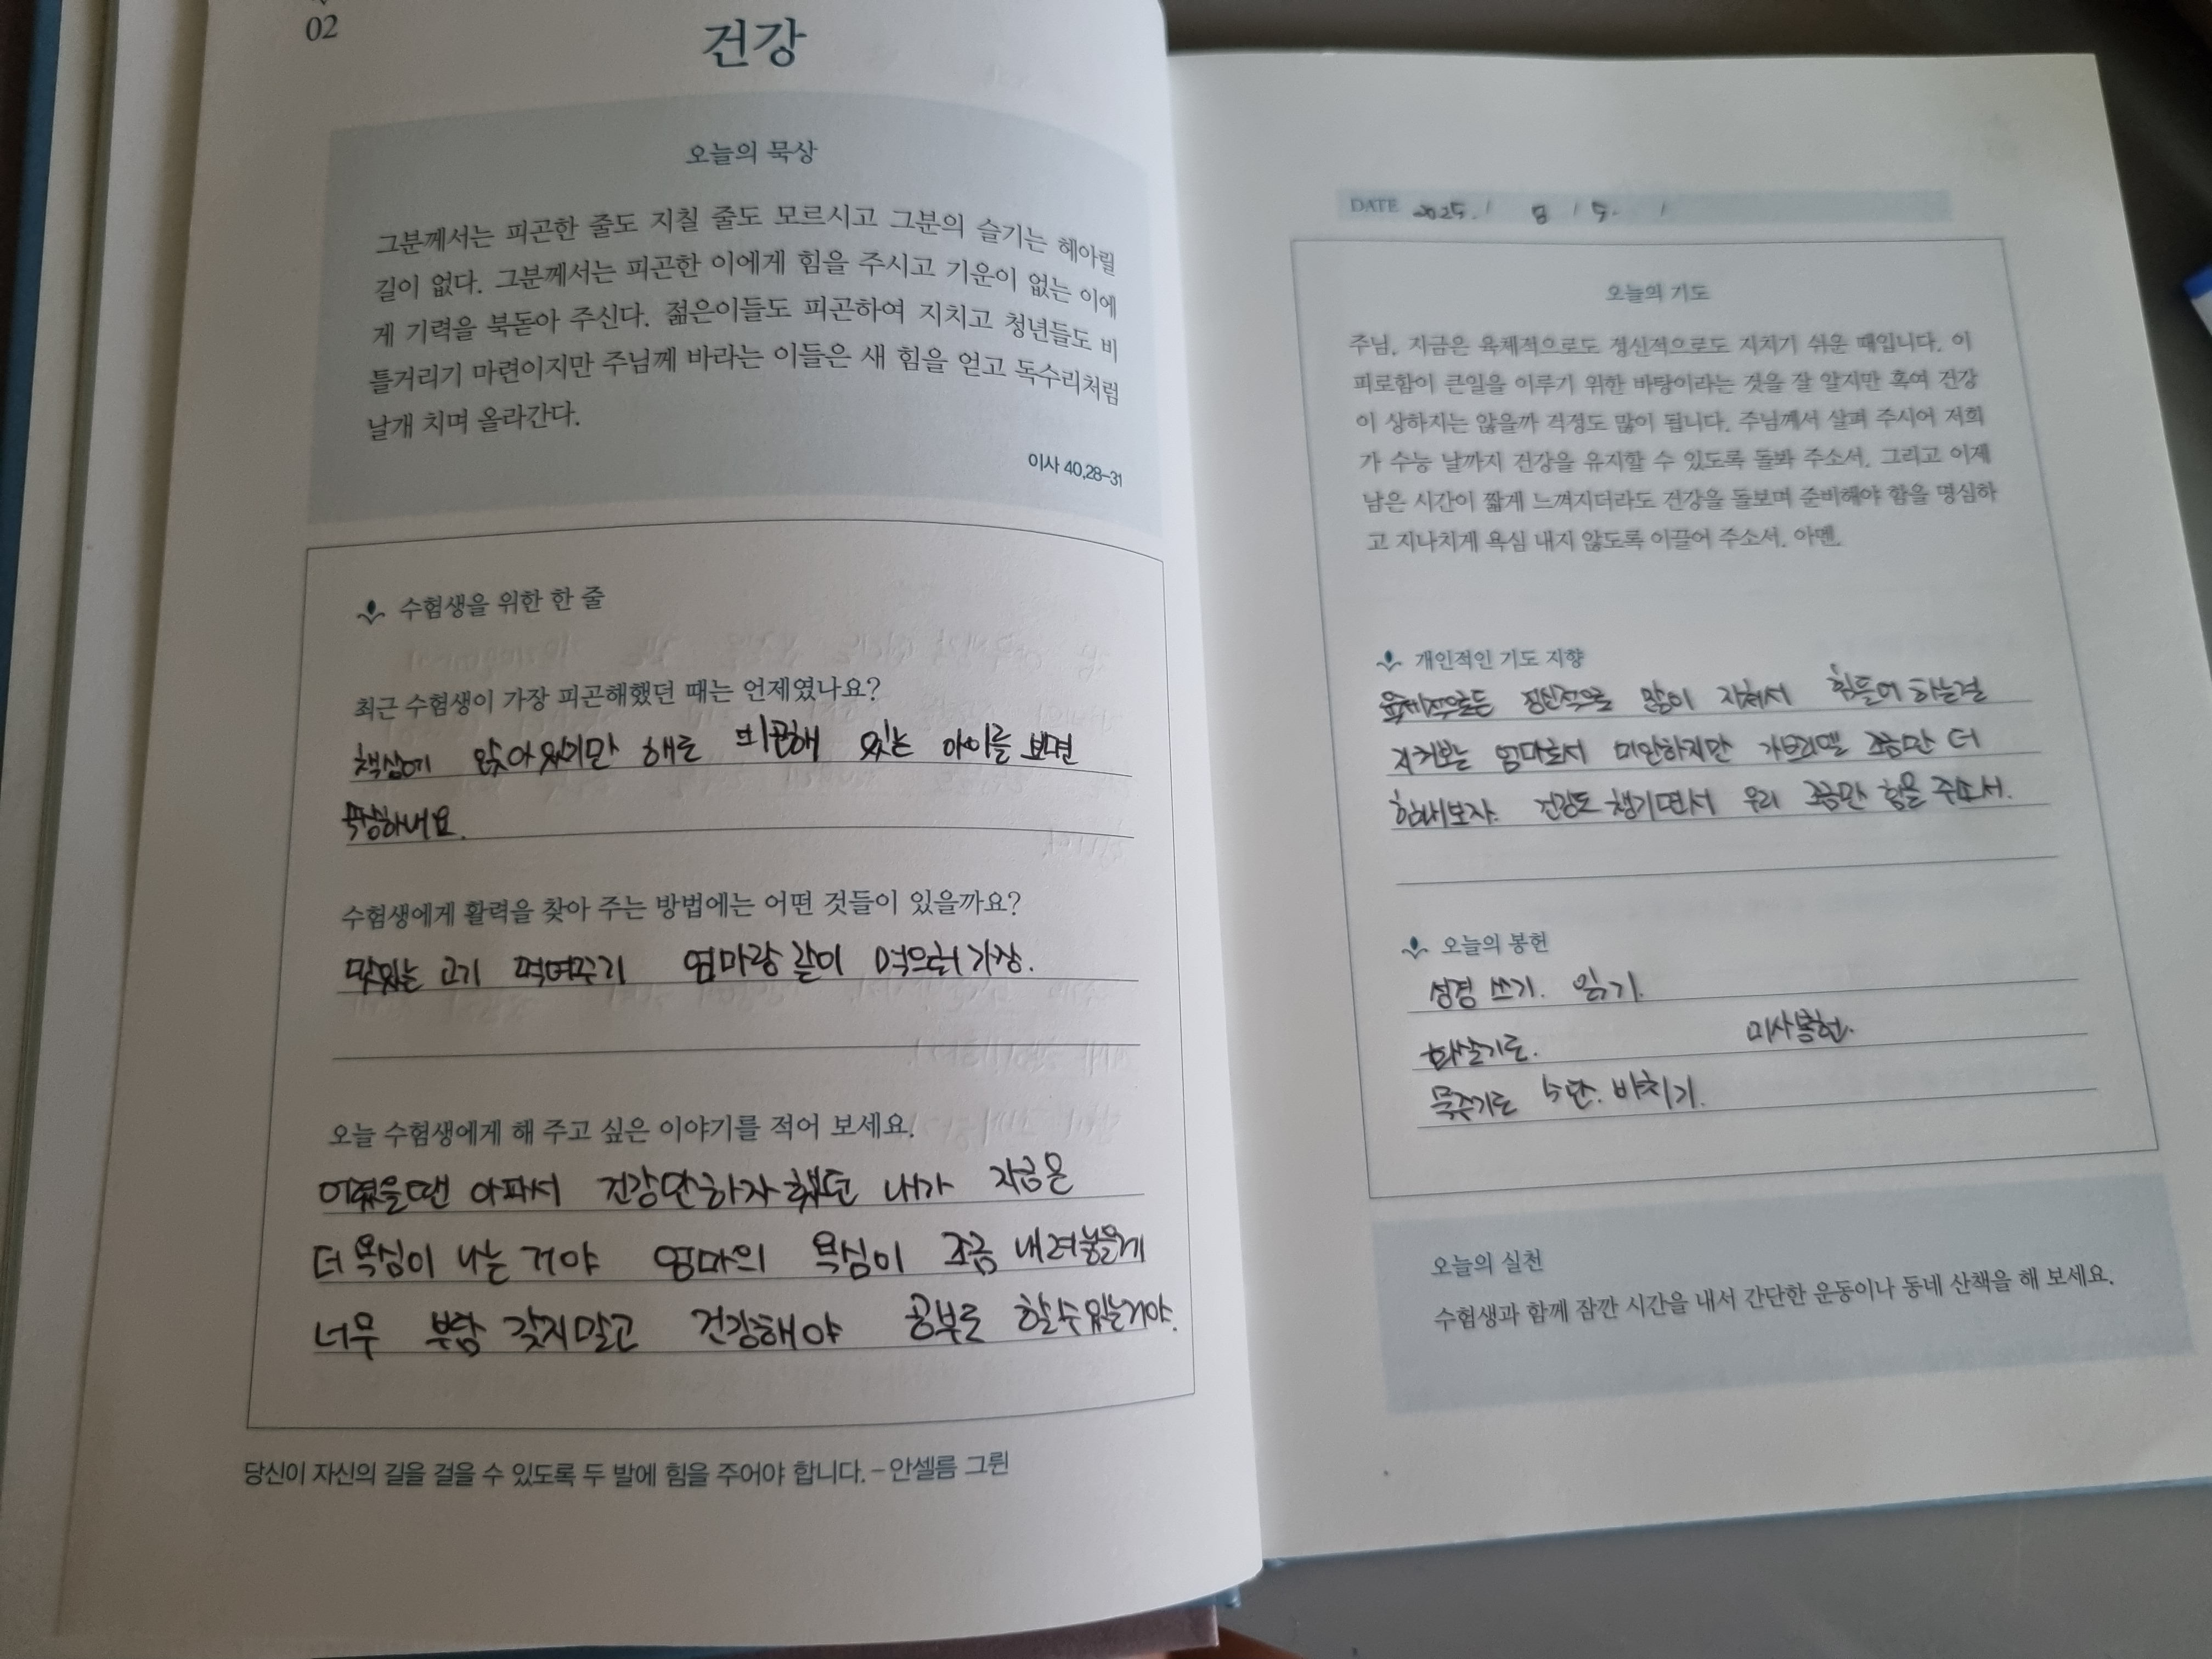 02
건강
오늘의 묵상
그분께서는 피곤한 줄도 지칠 줄도 모르시고 그분의 슬기는 헤아릴
길이 없다. 그분께서는 피곤한 이에게 힘을 주시고 기운이 없는 이에
게 기력을 북돋아 주신다. 젊은이들도 피곤하여 지치고 청년들도 비
틀거리기 마련이지만 주님께 바라는 이들은 새 힘을 얻고 독수리처럼
날개 치며 올라간다.
이사 40,28-31
수험생을 위한 한 줄
최근 수험생이 가장 피곤해했던 때는 언제였나요?
책상에 앉아 있지만 피곤해 있는 아이를 보면
수험생에게 활력을 찾아 주는 방법에는 어떤 것들이 있을까요?
맛있는 고기 먹여주기 엄마랑 같이 먹으러 가장.
오늘 수험생에게 해 주고 싶은 이야기를 적어 보세요.
아파서 건강만하자 했던 내가 지금은
더 욕심이 나는 거야 엄마의 욕심이 조금 내려놓을게
너무 부담 갖지말고 건강해야 공부도 할수있는거야.
당신이 자신의 길을 걸을 수 있도록 두 발에 힘을 주어야 합니다. – 안셀름 그륀
DATE 2025. / 8 / 5. /
오늘의 기도
주님, 지금은 육체적으로도 정신적으로도 지치기 쉬운 때입니다. 이
피로함이 큰일을 이루기 위한 바탕이라는 것을 잘 알지만 혹여 건강
이 상하지는 않을까 걱정도 많이 됩니다. 주님께서 살펴 주시어 저희
가 수능 날까지 건강을 유지할 수 있도록 돌봐 주소서. 그리고 이제
남은 시간이 짧게 느껴지더라도 건강을 돌보며 준비해야 함을 명심하
고 지나치게 욕심 내지 않도록 이끌어 주소서. 아멘.
개인적인 기도 지향
정신적으로 많이 지쳐서 힘들어 하는걸
지켜보는 엄마로서 미안하지만 가브리엘 조금만 더
힘내보자. 건강도 챙기면서 우리 조금만 힘을 주소서.
오늘의 봉헌
성경 쓰기. 읽기.
화살기도. 미사봉헌.
묵주기도 5단. 바치기.
오늘의 실천
수험생과 함께 잠깐 시간을 내서 간단한 운동이나 동네 산책을 해 보세요.